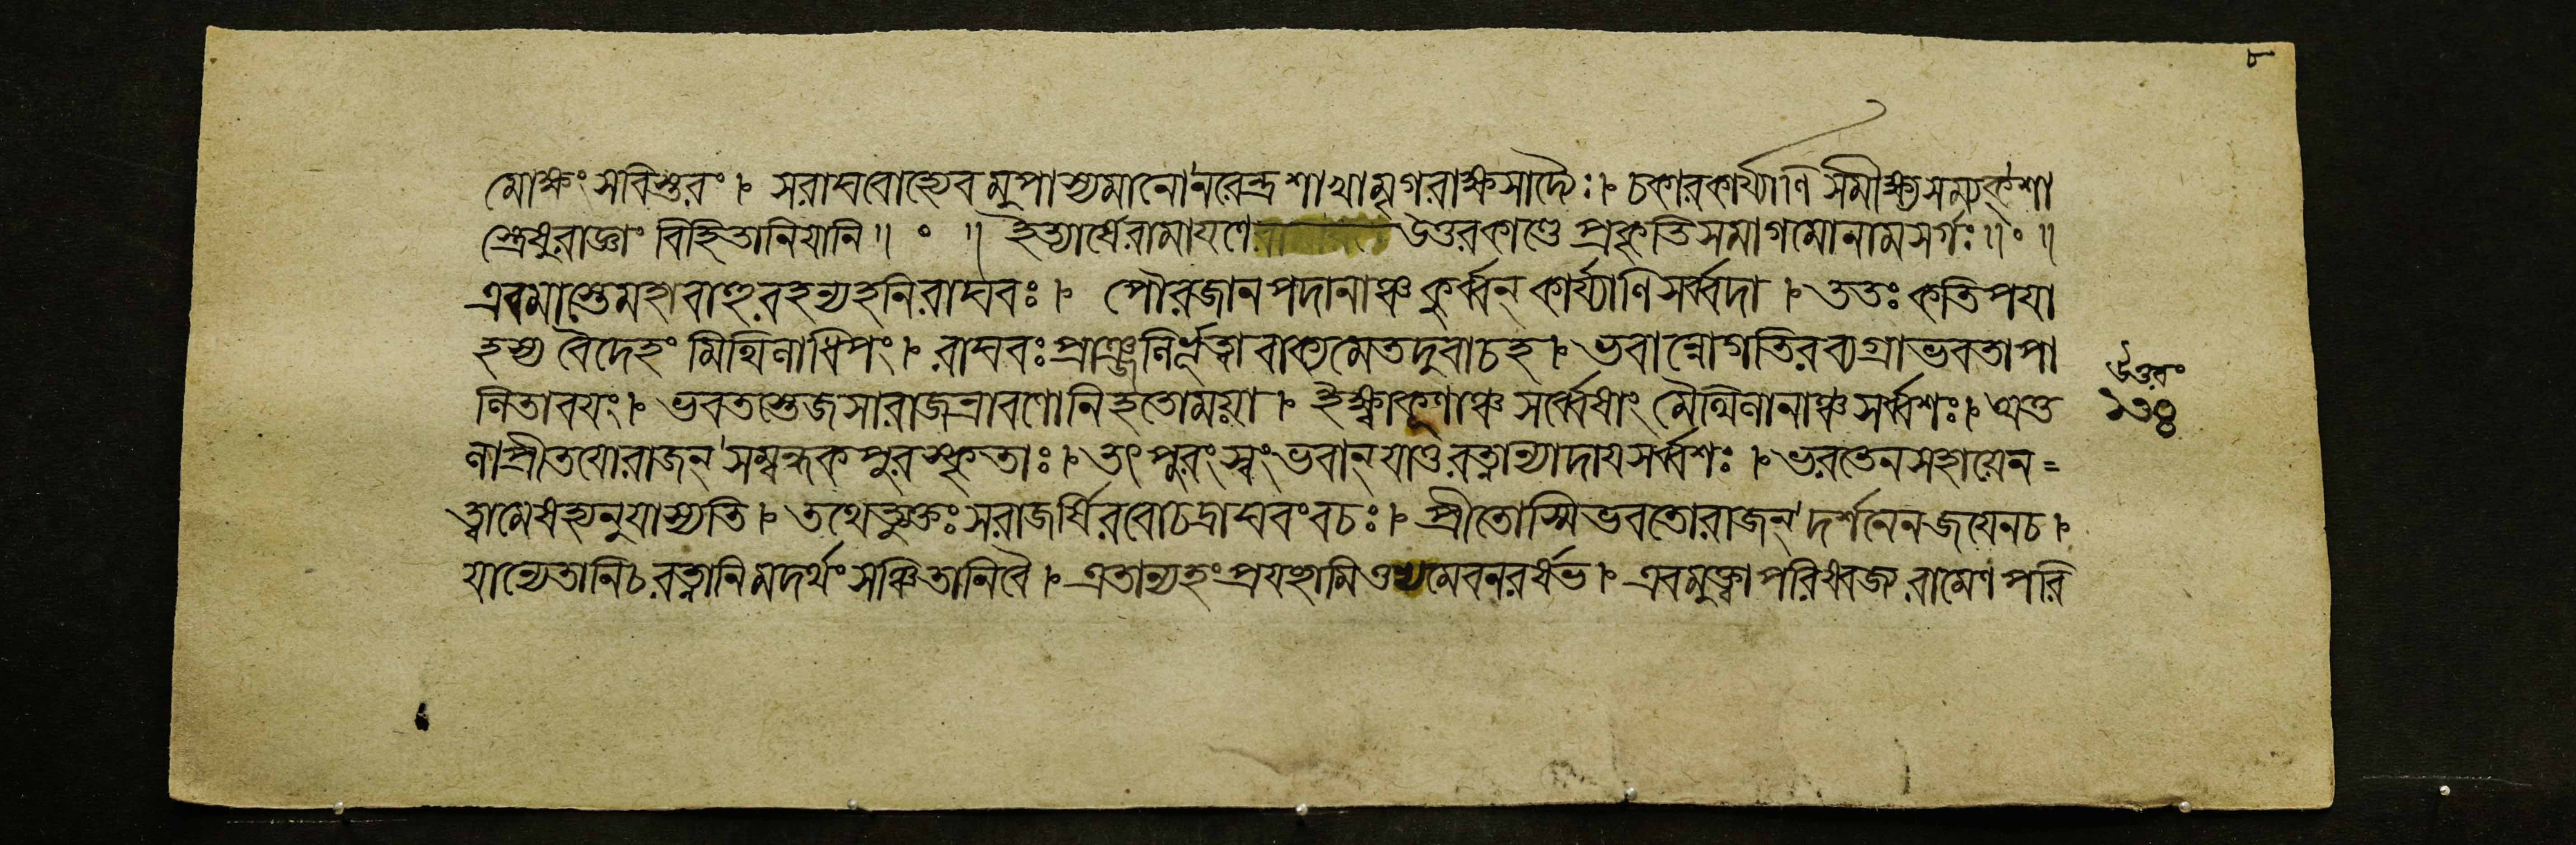 মোক্ষং সবিস্তরং ৷৷ স রাঘবোহ্যেবমুপাস্যমানো নরেন্দ্রশাখামৃগরাক্ষসাদ্যৈঃ ৷৷ চকার কার্য্যাণি সমীক্ষ্য সম্যক্ শা
স্ত্রেষু রাজ্ঞাং বিহিতানি যানি ॥ ० ॥ ইত্যার্ষে রামায়ণে উত্তরকাণ্ডে প্রকৃতিসমাগমো নাম সর্গঃ ॥ ० ॥
এবমাস্তে মহাবাহুরহন্যহনি রাঘবঃ ৷৷ পৌরজানপদানাঞ্চ কুর্ব্বন্ কার্য্যাণি সর্ব্বদা ৷৷ ততঃ কতিপয়া
হস্য বৈদেহং মিথিলাধিপং ৷৷ রাঘবঃ প্রাঞ্জলির্ভূত্বা বাক্যমেতদুবাচ হ ৷৷ ভবান্নো গতিরব্যগ্রা ভবতা পা
লিতা বয়ং ৷৷ ভবতস্তেজসা রাজন্ রাবণো নিহতো ময়া ৷৷ ইক্ষ্বাকূণাঞ্চ সর্ব্বেষাং মৈথিলানাঞ্চ সর্ব্বশঃ ৷৷ অতু
লা প্রীতয়ো রাজন্ সম্বন্ধকপুরস্কৃতাঃ ৷৷ তৎ পুরং স্বং ভবান্ যাতু রত্নান্যাদায় সর্ব্বশঃ ৷৷ ভরতেন সহায়েন =
ত্বামেষ হ্যনুযাস্যতি ৷৷ তথেত্যুক্তঃ স রাজর্ষিরবোচদ্রাঘবং বচঃ ৷৷ প্রীতোস্মি ভবতো রাজন্ দর্শনেন জয়েন চ ৷৷
যান্যেতানি চ রত্নানি মদর্থং সঞ্চিতানি বৈ ৷৷ এতান্যহং প্রযচ্ছামি মেব নরর্ষভ ৷৷ এবমুক্ত্বা পরিষ্বজ্য রামেণ পরি
উত্তরং